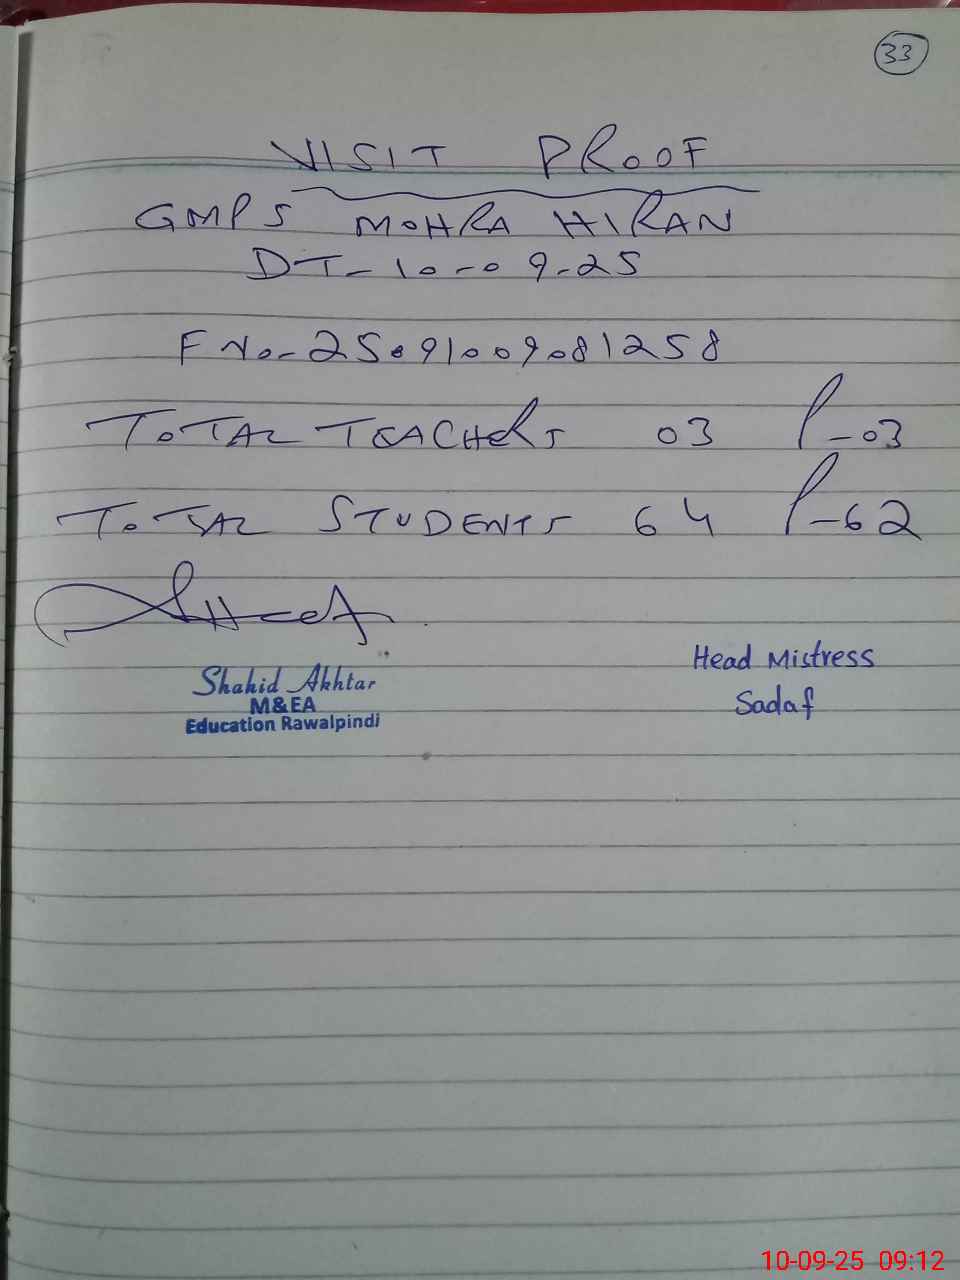 33
VISIT PROOF
GMPS MOHRA HIRAN
DT-10-09-25
F No-25091009081258
TOTAL TEACHERS 03 P-03
TOTAL STUDENTS 64 P-62
Shahid Akhtar
M&EA
Education Rawalpindi
Head Mistress
Sadaf
10-09-25 09:12